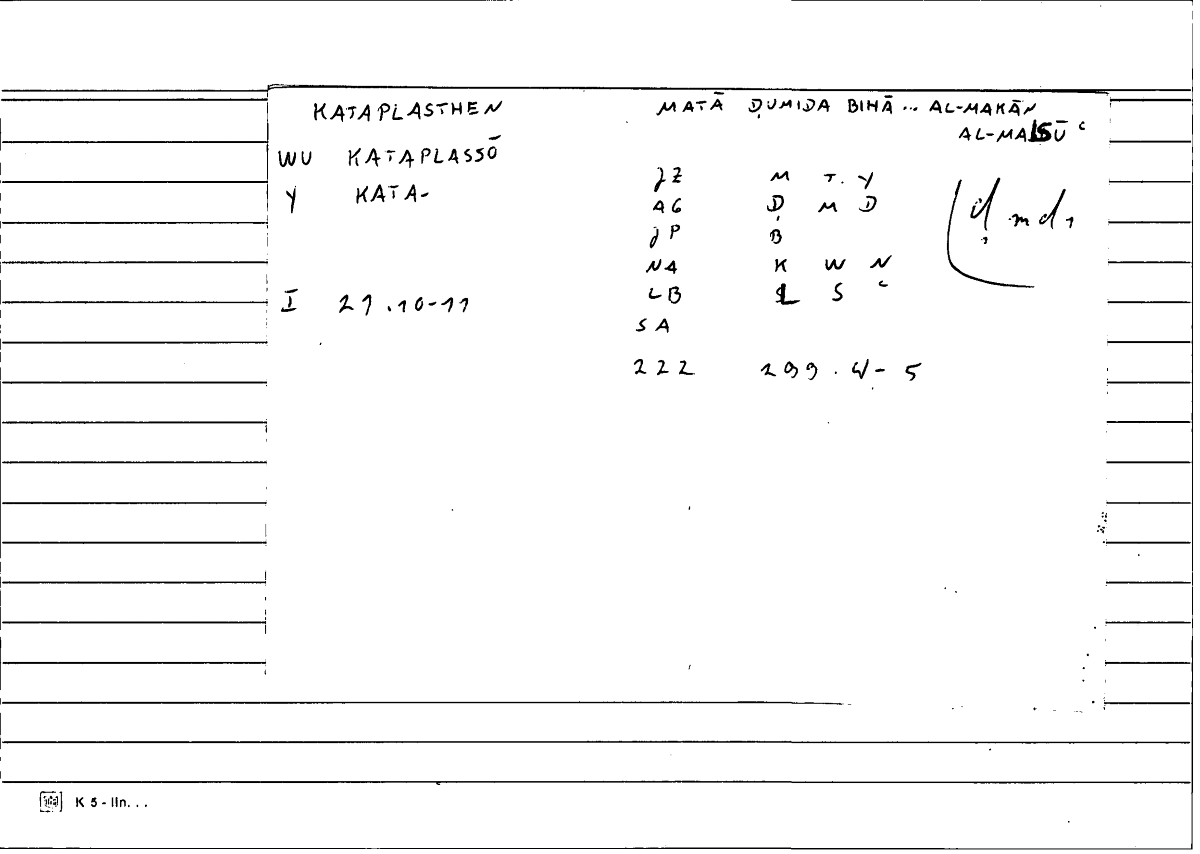 KATAPLASTHEN
WU KATAPLASSŌ
Y KATA-
I 21.10-11
MATĀ ḌUMIDA BIHĀ ... AL-MAKĀN
AL-MALSŪʿ
JZ M T. Y
AG Ḍ M D
JP B
NA K W N
LB L S ʿ
SA
222 299.4-5
ḍmd1
K 5 - IIn...